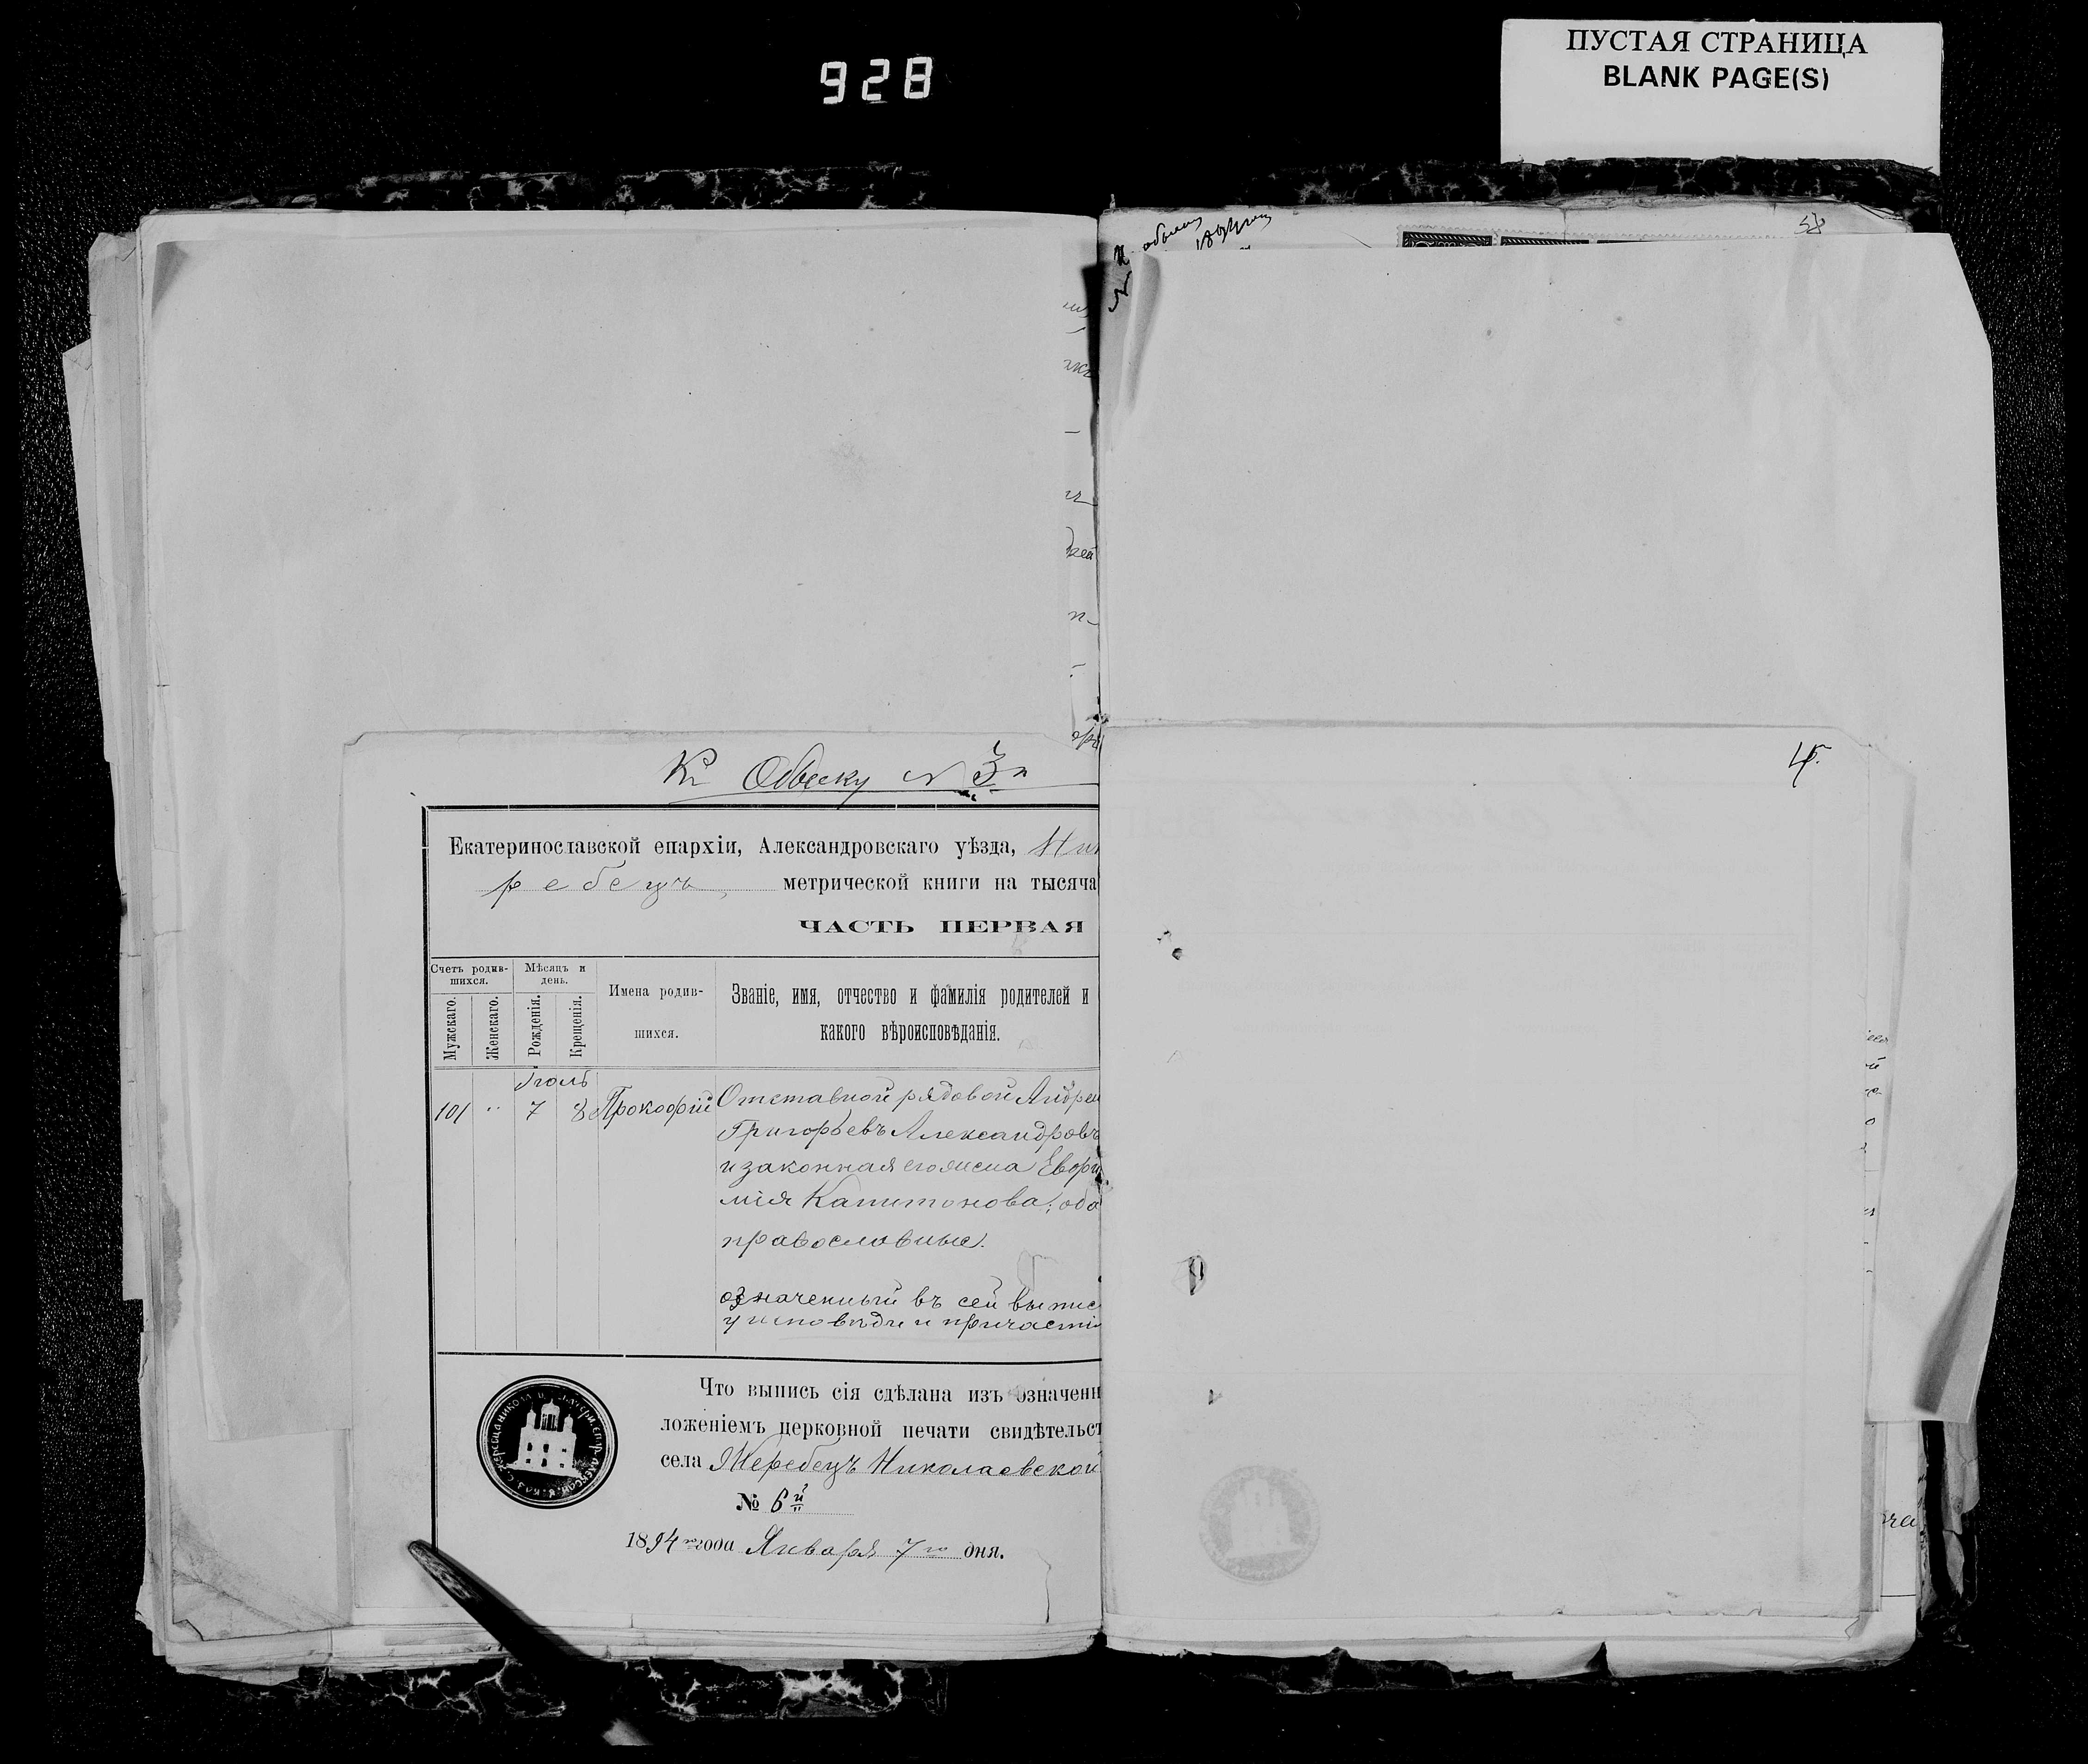 928
ПУСТАЯ СТРАНИЦА
BLANK PAGE(S)
Къ Обыску № 3й
Екатеринославской епархіи, Александровскаго уѣзда, Ни
ребецъ, метрической книги на тысяча
ЧАСТЬ ПЕРВАЯ
Счетъ родив-
шихся.
Мѣсяцъ и
день.
Мужскаго.
Женскаго.
Рожденія.
Крещенія.
Имена родив-
шихся.
Званіе, имя, отчество и фамилія родителей и
какого вѣроисповѣданія.
Іюль
101 " 7 8 Прокофій Отставной рядовой Андрей
Григорьевъ Александровъ
и законная его жена Евфи
мія Капитонова; оба
православные.
означенный въ сей выпис
у исповѣди и причастія
Что выпись сія сдѣлана изъ означенн
ложеніемъ церковной печати свидѣтельст
села Жеребецъ Николаевской
№ 6й
1894 года Января 7го дня.